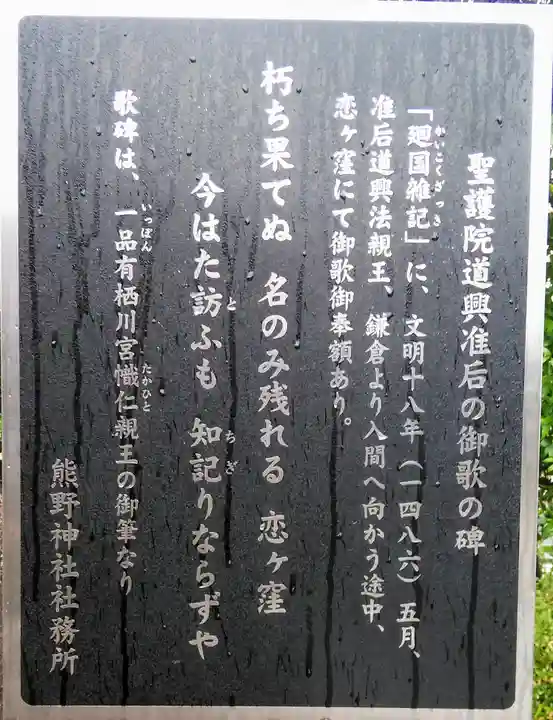 聖護院道興准后の御歌の碑
「廻国雑記」に、文明十八年(一四八六)五月、
かいこくざっき
准后道興法親王、鎌倉より入間へ向かう途中、
恋ヶ窪にて御歌御奉額あり。
朽ち果てぬ 名のみ残れる 恋ヶ窪
今はた訪ふも 知記りならずや
と ちぎ
歌碑は、一品有栖川宮幟仁親王の御筆なり
いっぽん たかひと
熊野神社社務所